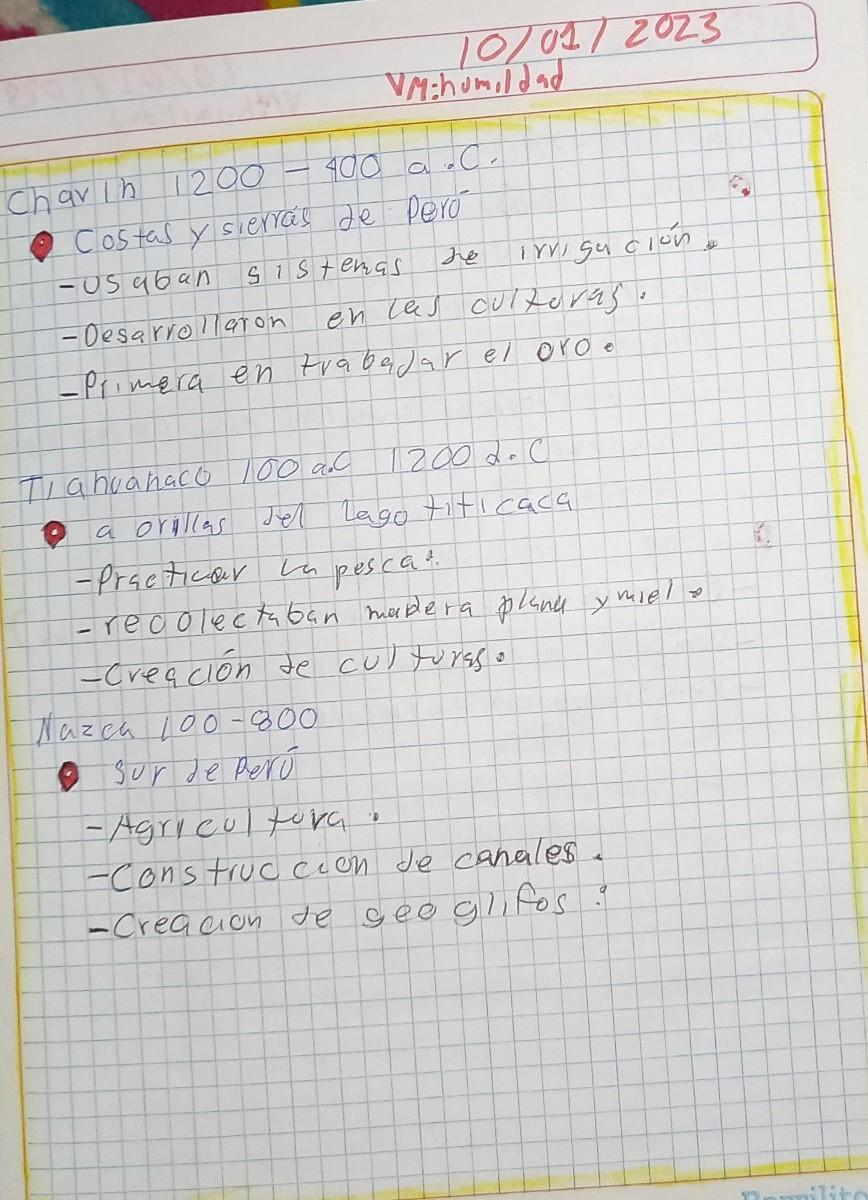 10/01/2023
VM:humildad
Chavin 1200 - 400 a.C.
Costas y sierras de Perú
-Usaban sistemas de irrigación.
-Desarrollaron en las culturas.
-Primera en trabajar el oro.
Tiahuanaco 100 a.C 1200 d.C
a orillas del lago titicaca
-Practicar la pesca.
-recolectaban madera plana y miel.
-Creación de culturas.
Nazca 100-800
Sur de Perú
-Agricultura.
-Construccion de canales.
-Creacion de geoglifos.